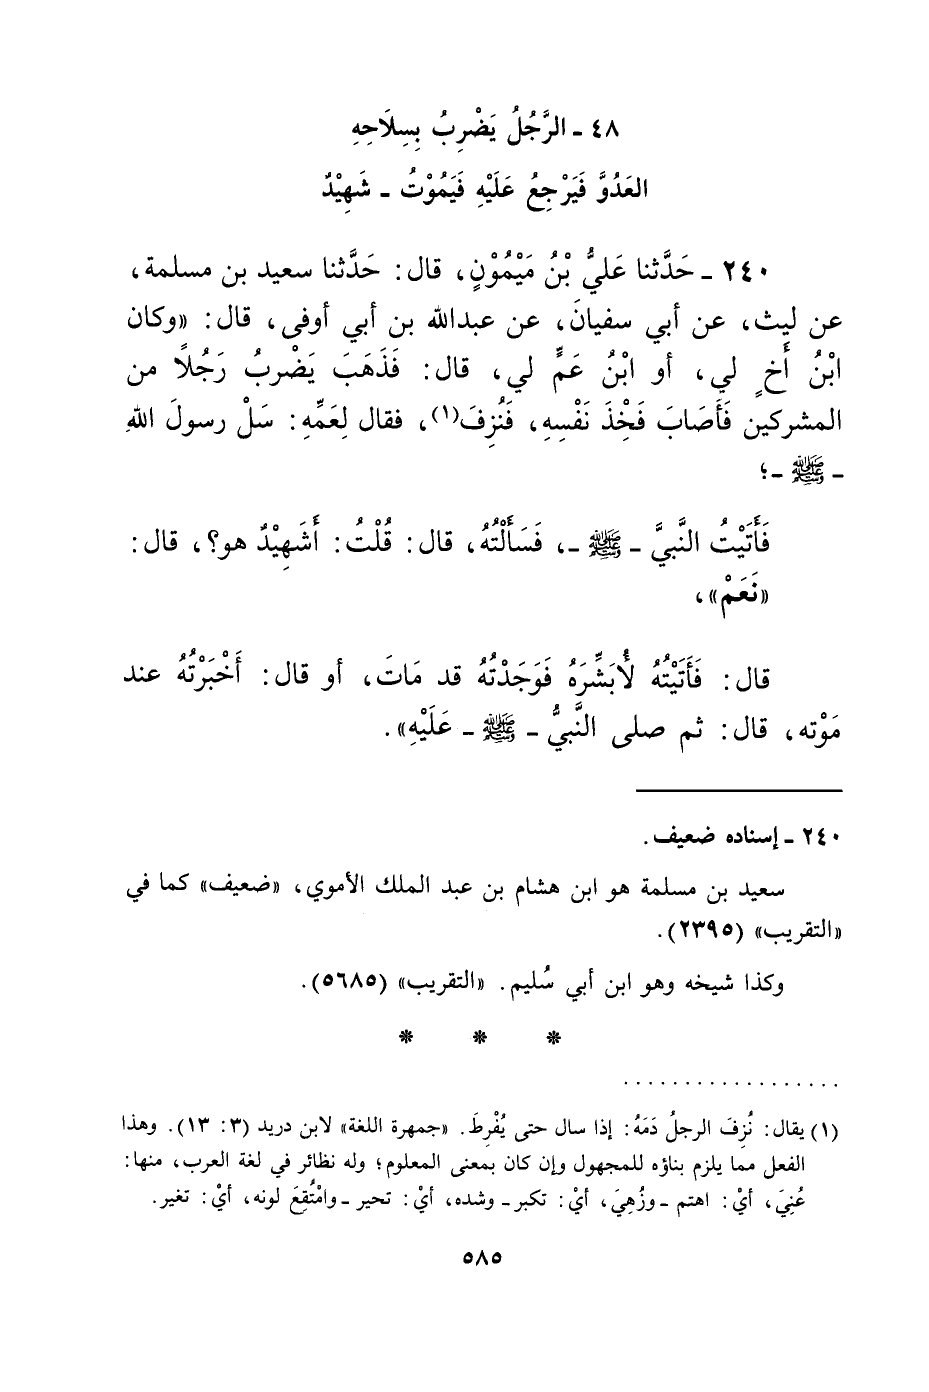 ٤٨ ـ الرَّجُلُ يَضْرِبُ بِسِلَاحِهِ
العَدُوَّ فَيَرْجِعُ عَلَيْهِ فَيَمُوْتُ ـ شَهِيْدٌ
٢٤٠ ـ حَدَّثنا عَليُّ بْنُ مَيْمُوْنٍ، قال: حَدَّثنا سعيد بن مسلمة،
عن ليث، عن أبي سفيانَ، عن عبدالله بن أبي أوفى، قال: «وكان
ابْنُ أَخٍ لي، أو ابْنُ عَمٍّ لي، قال: فَذَهَبَ يَضْربُ رَجُلًا من
المشركين فَأَصَابَ فَخْذَ نَفْسِهِ، فَنُزِفَ(١)، فقال لِعَمِّهِ: سَلْ رسولَ اللهِ
ـ ﷺ ـ؛
فَأَتَيْتُ النَّبيَّ ـ ﷺ ـ، فَسَأَلْتُهُ، قال: قُلْتُ: أَشَهِيْدٌ هو؟، قال:
«نَعَمْ»،
قال: فَأَتَيْتُهُ لُأبَشِّرَهُ فَوَجَدْتُهُ قد مَاتَ، أو قال: أَخْبَرْتُهُ عند
مَوْته، قال: ثم صلى النَّبيُّ ـ ﷺ ـ عَلَيْهِ».
٢٤٠ ـ إسناده ضعيف.
سعيد بن مسلمة هو ابن هشام بن عبد الملك الأموي، «ضعيف» كما في
«التقريب» (٢٣٩٥).
وكذا شيخه وهو ابن أبي سُليم. «التقريب» (٥٦٨٥).
* * *
..................
(١) يقال: نُزِفَ الرجلُ دَمَهُ: إذا سال حتى يُفْرِطَ. «جمهرة اللغة» لابن دريد (٣: ١٣). وهذا
الفعل مما يلزم بناؤه للمجهول وإن كان بمعنى المعلوم؛ وله نظائر في لغة العرب، منها:
عُنِيَ، أيْ: اهتم ـ وزُهِيَ، أيْ: تكبر ـ وشده، أيْ: تحير ـ وامْتُقِعَ لونه، أيْ: تغير.
٥٨٥